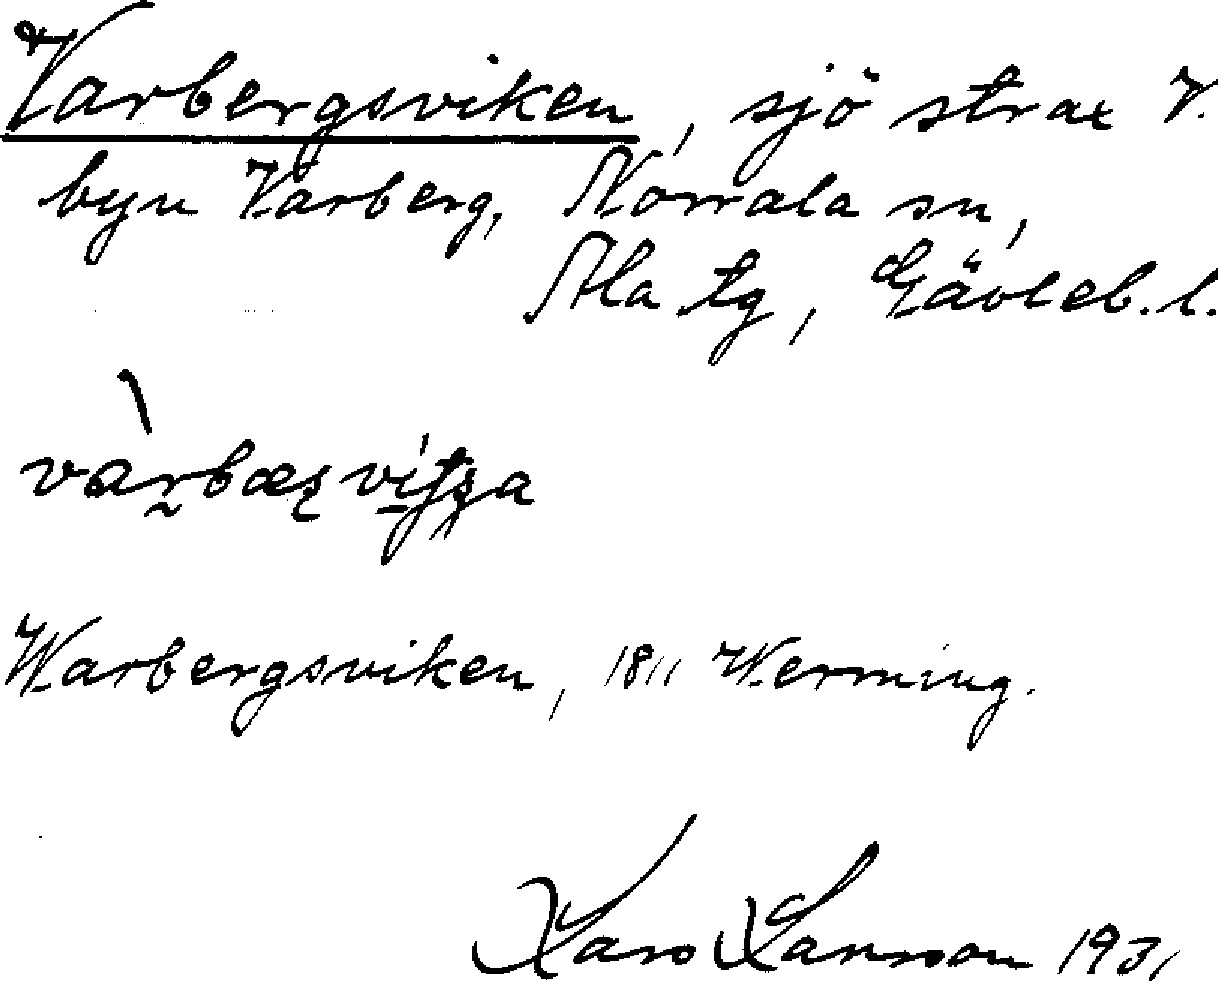 Varbergsviken, sjö strax V.
byn Varberg, Norrala sn,
Ala tg, Gävleb. l.
Warbergsviken, 1811 Werming.
Lars Larsson 1931